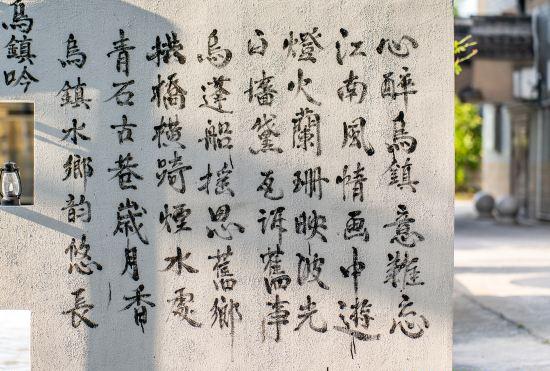 烏鎮吟
烏鎮水鄉韵悠長
青石古巷歲月香
拱橋橫跨煙水處
烏蓬船摇思舊鄉
白墻黛瓦訴舊事
燈火蘭珊映波光
江南風情画中遊
心醉烏鎮意難忘